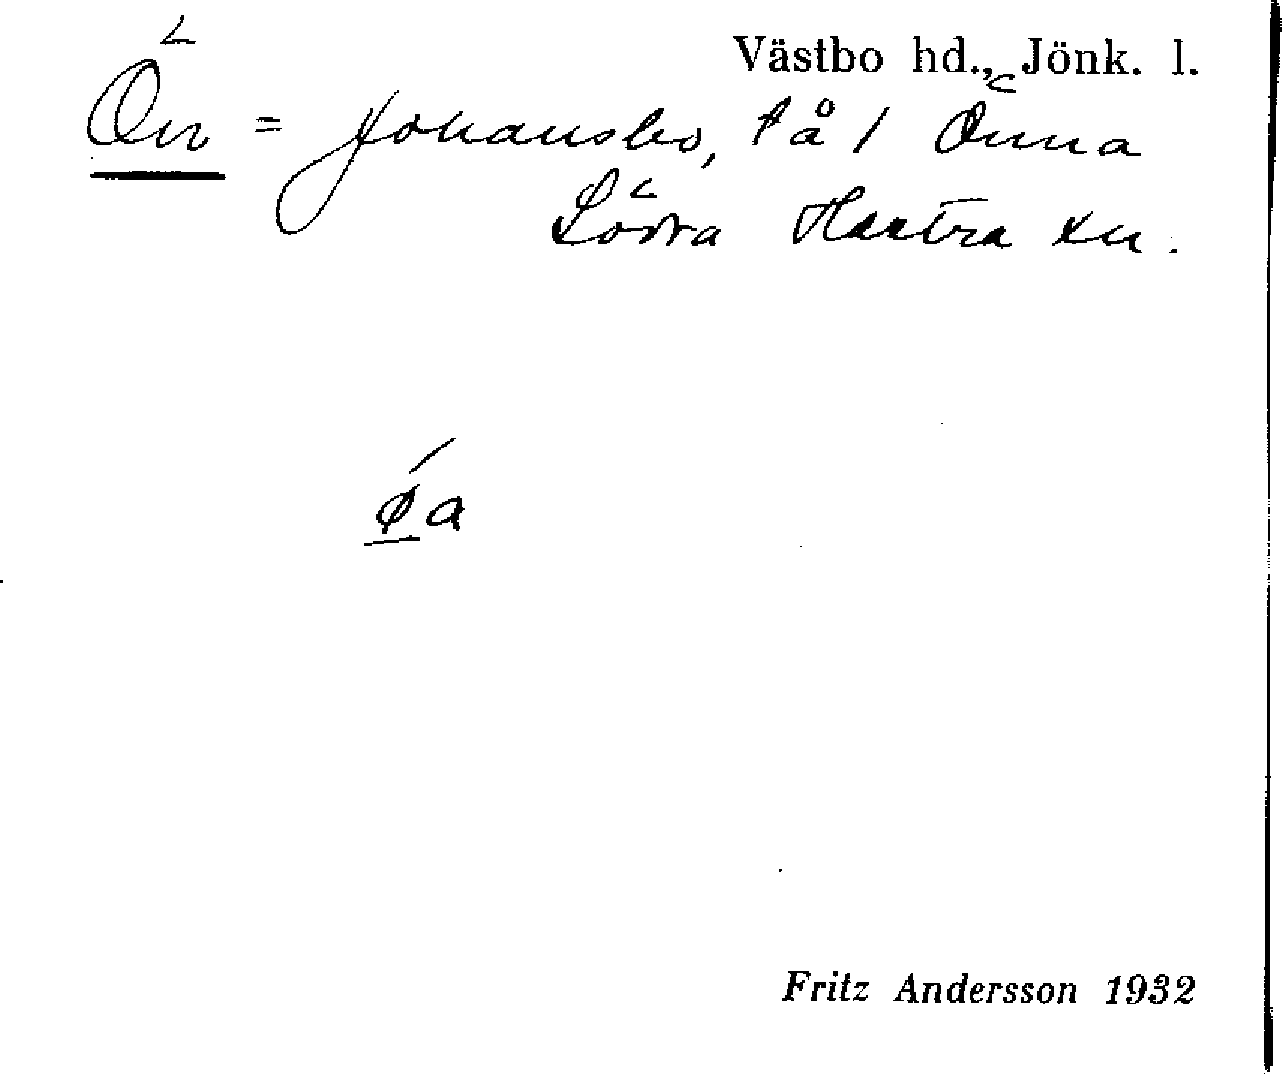 Västbo hd., Jönk. l.
Ön = Johansbo, tå 1 Önna
Södra Hestra sn.
øa
Fritz Andersson 1932